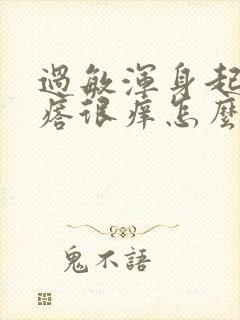 過敏渾身起
痞很癢怎麼
鬼不語